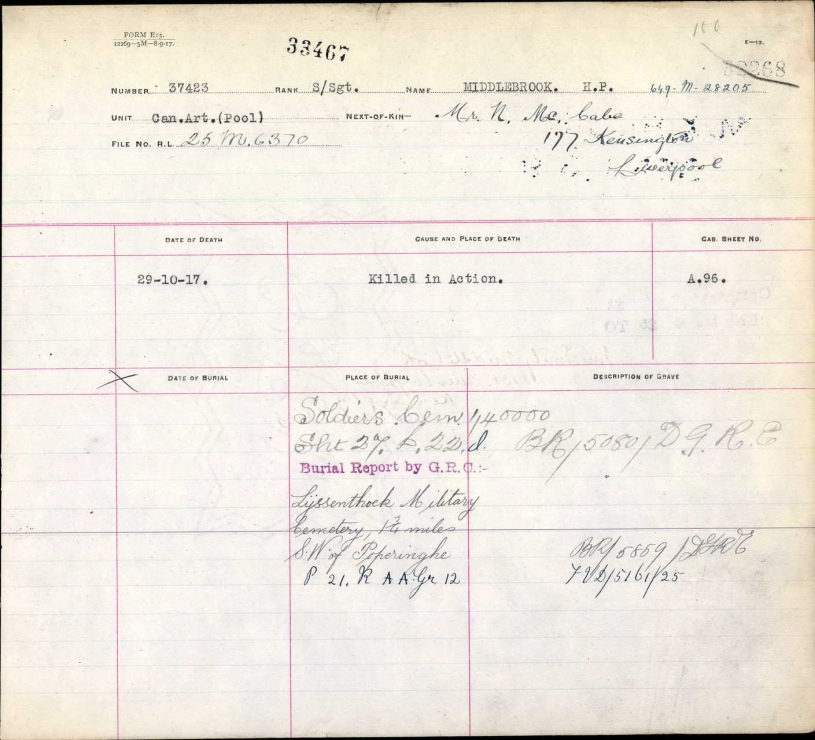 FORM E13.
12269-5M-8-9-17.
33467
E-13.
32268
NUMBER 37423 RANK S/Sgt. NAME MIDDLEBROOK. H.P. 649-M-28205
UNIT Can.Art.(Pool) NEXT-OF-KIN- Mr. N. Mc. Cabe
FILE NO. R.L. 25 M. 6370 177 Kensington
Liverpool
DATE OF DEATH CAUSE AND PLACE OF DEATH CAS. SHEET NO.
29-10-17. Killed in Action. A.96.
DATE OF BURIAL PLACE OF BURIAL DESCRIPTION OF GRAVE
Soldiers Cem. 1/40000
Sht 27. L. 22. d. BR/5080/D G. R. E
Burial Report by G.R.C:-
Lijssenthoek Military
Cemetery, 1¾ miles
S.W. of Poperinghe BR/5859/DGRE
P 21. R A A Gr 12 FVD/5161/25